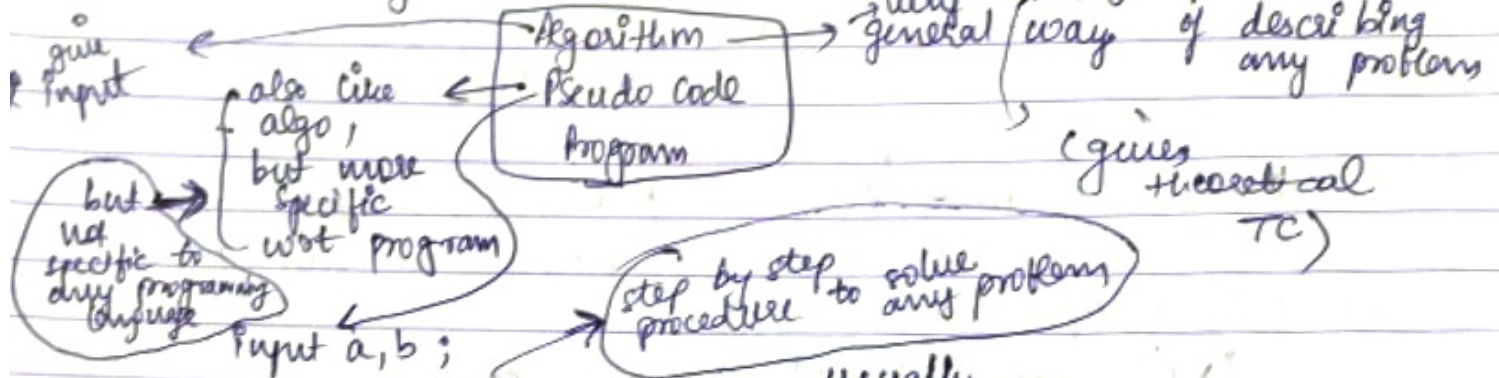 Algorithm
Pseudo Code
Program
very
general way of describing
any problem
(gives
theoretical
TC)
give
input
also like
algo,
but more
specific
wrt program
but
not
specific to
any programing
language
input a, b ;
step by step
procedure to solve
any problem
usually